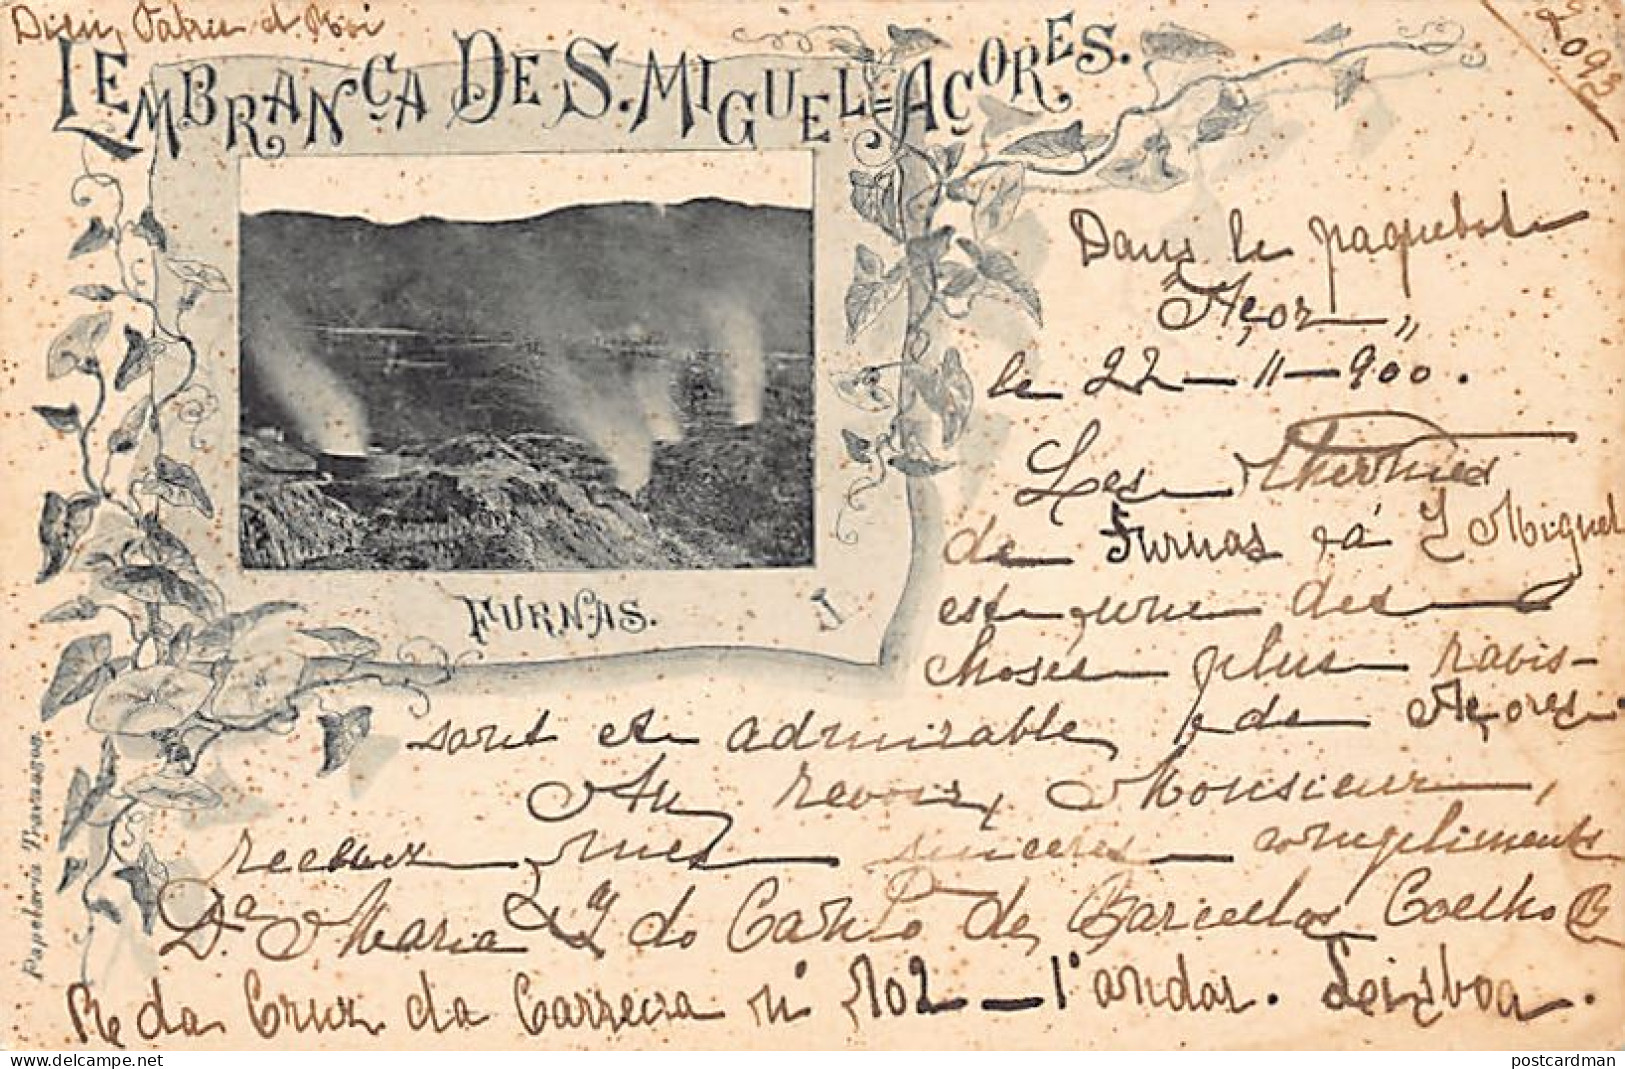 Dieu, Patrie et Roi
2092
LEMBRANÇA DE S. MIGUEL=AÇORES.
Dans le paquebot
"Açor"
le 22-11-900.
Les Thermes
de Furnas à S Miguel
est une des
choses plus ravis-
sant et admirable, de Açores.
Au revoir, Monsieur,
recevez mes sinceres compliments
Dª Maria do Carmo de Barcellos Coelho B
Rª da Cruz da Carreira nº 102 - 1º andar. Leisboa.
FURNAS.
Papelaria Travassos.
postcardman